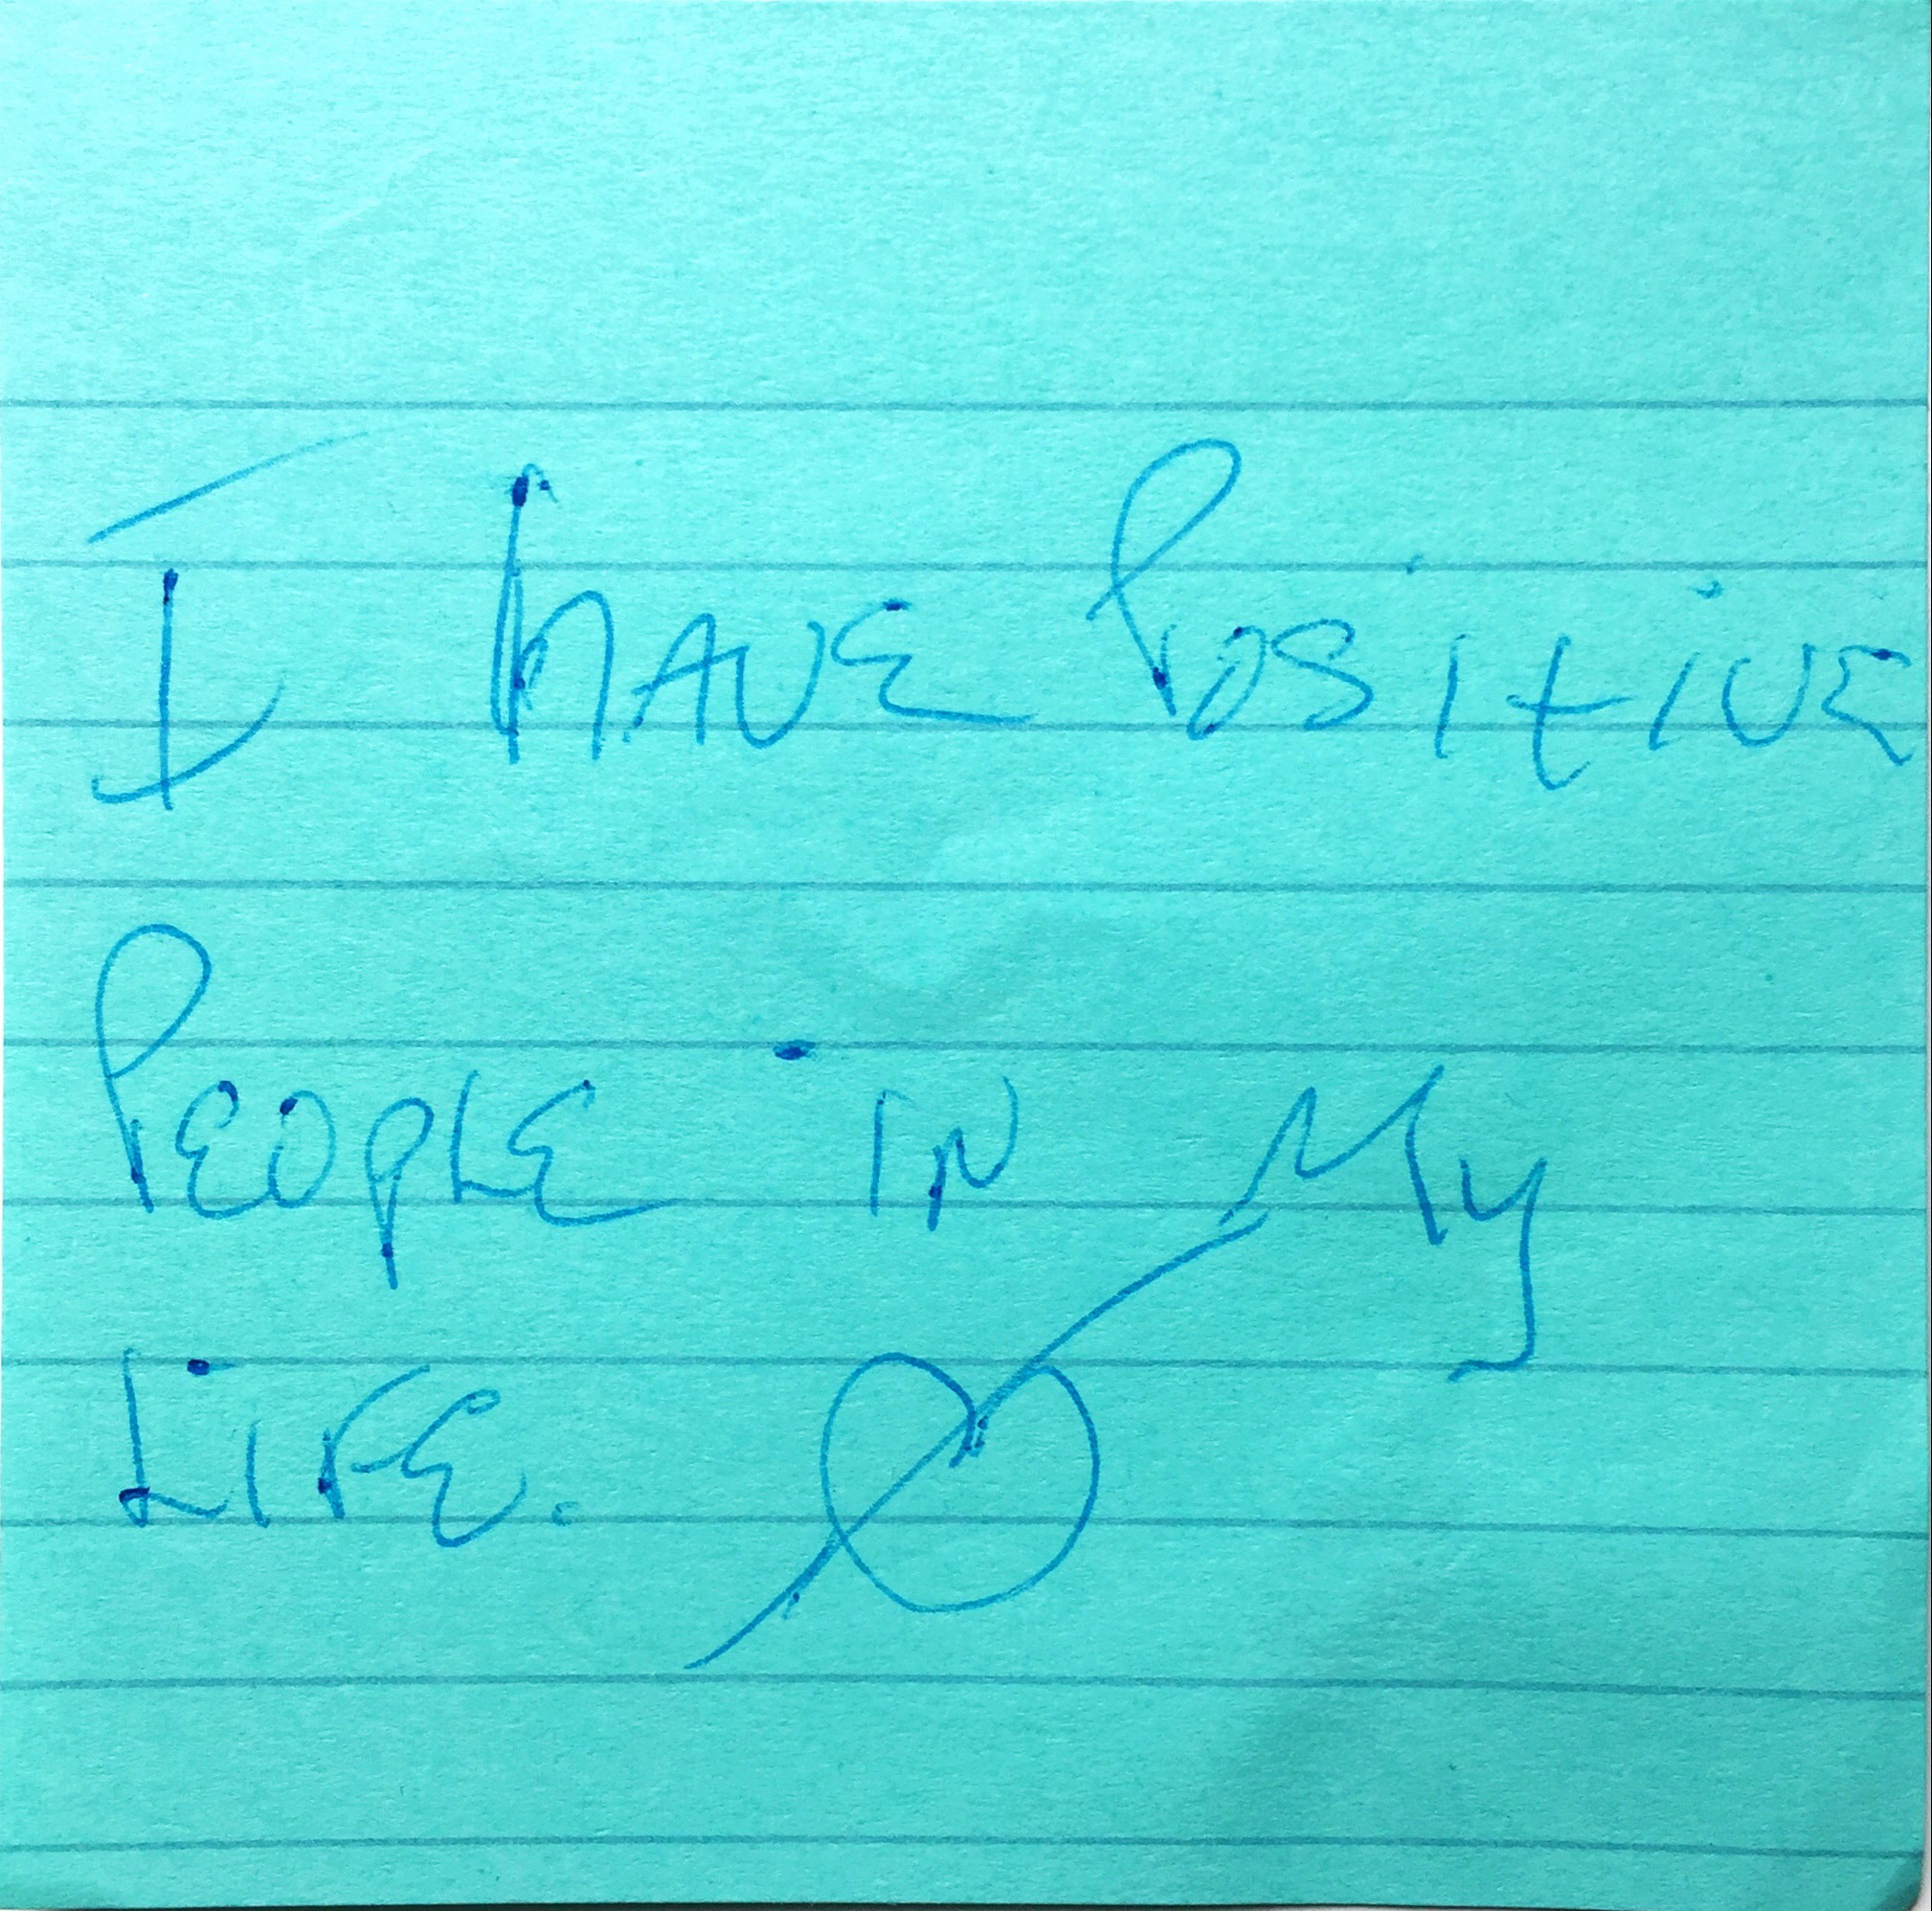 I have Positive
People in My
Life.